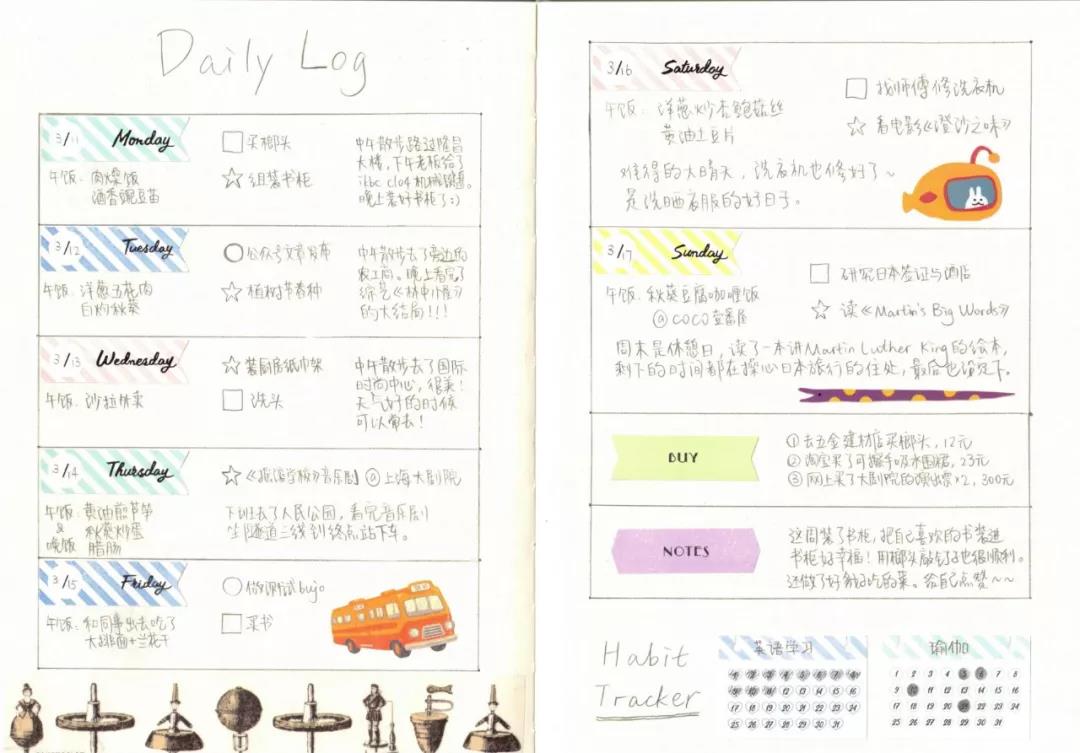 Daily Log
3/11 Monday
午饭: 肉燥饭
酒香豌豆苗
买榔头
组装书柜
中午散步路过隆昌
大楼,下午老板给了
ikbc c104 机械键盘。
晚上装好书柜了:)
3/12 Tuesday
午饭: 洋葱五花肉
白灼秋葵
公众号文章发布
植树节春种
中午散步去了旁边的
农工商。晚上看完了
综艺
的大结局!!!
3/13 Wednesday
午饭: 沙拉外卖
装厨房纸巾架
洗头
中午散步去了国际
时尚中心,很美!
天气好的时候
可以常去!
3/14 Thursday
午饭: 黄油煎芦笋
& 秋葵炒蛋
晚饭 腊肠
《摇滚学校》音乐剧 @上海大剧院
下班去了人民公园,看完音乐剧
坐隧道三线到终点站下车。
3/15 Friday
午饭: 和同事出去吃了
大排面+兰花干
做 bujo
买书
3/16 Saturday
午饭: 洋葱炒杏鲍菇丝
黄油土豆片
找师傅修洗衣机
看电影《澄沙之味》
难得的大晴天,洗衣机也修好了~
是洗晒衣服的好日子。
3/17 Sunday
午饭: 秋葵豆腐咖喱饭
@ COCO壹番屋
研究日本签证与酒店
读《Martin's Big Words》
周末是休憩日,读了一本讲Martin Luther King的绘本,
剩下的时间都在操心日本旅行的住处,最后也搞定下。
BUY
① 去五金建材店买榔头,12元
② 淘宝买了可擦手吸水围裙,23元
③ 网上买了大剧院的演出票×2,300元
NOTES
这周装了书柜,把自己喜欢的书装进
书柜好幸福!用榔头敲钉子也很顺利。
还做了好几好吃的菜。给自己点赞~~
Habit
Tracker
英语学习
17 18 19 20 21 22 23 24
25 26 27 28 29 30 31
瑜伽
1 2 3 4 5 6 7 8
9 10 11 12 13 14 15 16
17 18 19 20 21 22 23 24
25 26 27 28 29 30 31